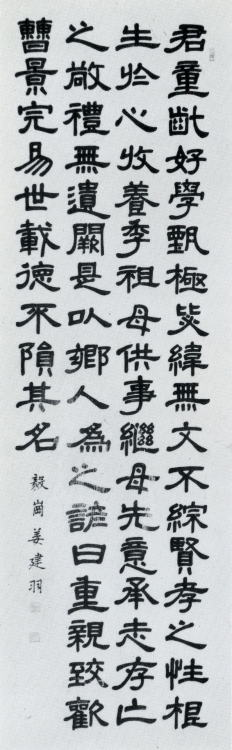 君童齔好學甄極毖緯無文不綜賢孝之性根
生於心收養季祖母供事繼母先意承志存亡
之敬禮無遺闕是以鄉人為之諺曰重親致歡
曹景完易世載德不隕其名
毅崗姜建羽